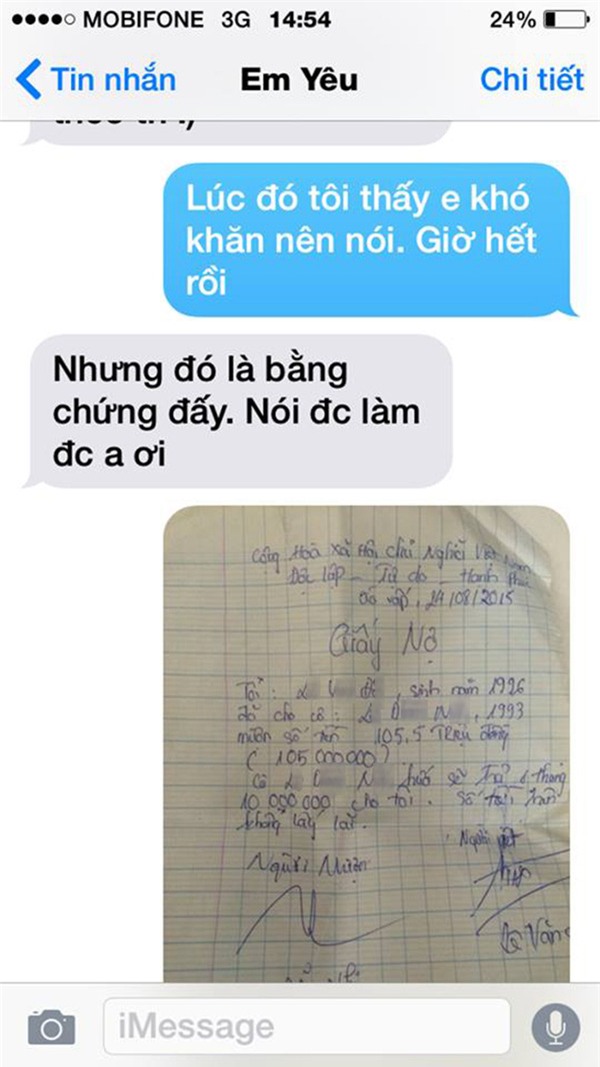 MOBIFONE 3G 14:54 24%
Tin nhắn Em Yêu Chi tiết
Lúc đó tôi thấy e khó
khăn nên nói. Giờ hết
rồi
Nhưng đó là bằng
chứng đấy. Nói đc làm
đc a ơi
Cộng Hoà Xã Hội chủ Nghĩa Việt Nam
Độc lập - Tự do - Hạnh Phúc
Gò vấp, 29/08/2015
Giấy Nợ
Tôi: , sinh năm 1926
đã cho cô: , 1993
mượn số tiền 105,5 Triệu đồng
( 105 000 000)
Cô hứa sẽ Trả 1 tháng
10 000 000 cho tôi. Số tiền trên
không lấy lãi.
Người
Người Mượn
Lê Văn
iMessage